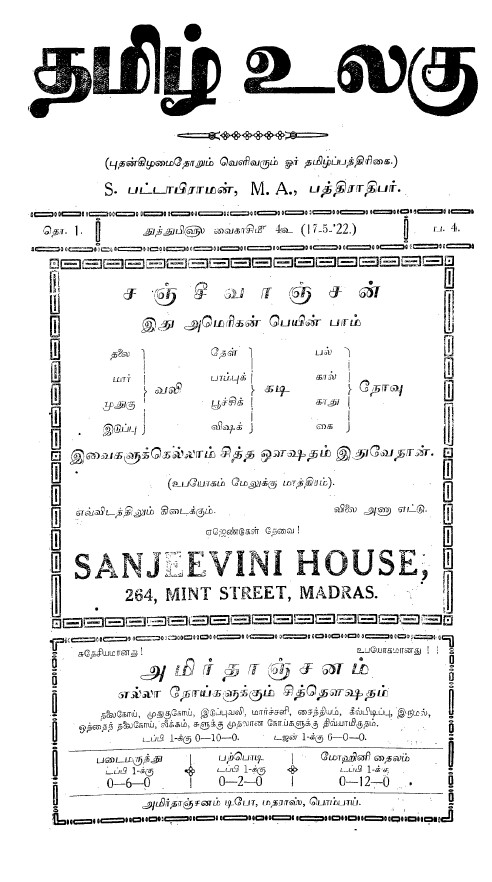 தமிழ் உலகு
(புதன்கிழமைதோறும் வெளிவரும் ஓர் தமிழ்ப்பத்திரிகை.)
S. பட்டாபிராமன், M. A., பத்திராதிபர்.
தொ. 1. துந்துபிஹு வைகாசிமீ 4உ (17-5-'22.) ப. 4.
சஞ்சீவாஞ்சன்
இது அமெரிகன் பெயின் பாம்
தலை
மார்
முதுகு
இடுப்பு
வலி
தேள்
பாம்புக்
பூச்சிக்
விஷக்
கடி
பல்
கால்
காது
கை
நோவு
இவைகளுக்கெல்லாம் சித்த ஒளஷதம் இதுவேதான்.
(உபயோகம் மேலுக்கு மாத்திரம்).
எவ்விடத்திலும் கிடைக்கும். விலை அணு எட்டு.
ஏஜெண்டுகள் தேவை!
SANJEEVINI HOUSE,
264, MINT STREET, MADRAS.
சுதேசியமானது! உபயோகமானது!!
அமிர்தாஞ்சனம்
எல்லா நோய்களுக்கும் சித்தௌஷதம்
தலைகோய், முதுகுகோய், இடுப்புவலி, மார்ச்சளி, சைத்தியம், கீல்பிடிப்பு, இருமல்,
ஒத்தைத் தலைகோய், வீக்கம், சுளுக்கு முதலான கோய்களுக்கு திவ்யாமிருதம்.
டப்பி 1-க்கு 0—10—0. டஜன் 1-க்கு 6—0—0.
படைமருந்து
டப்பி 1-க்கு
0—6—0
பற்பொடி
டப்பி 1-க்கு
0—2—0
மோஹினி தைலம்
டப்பி 1-க்கு
0—12—0
அமிர்தாஞ்சனம் டிபோ, மதராஸ், பொம்பாய்.